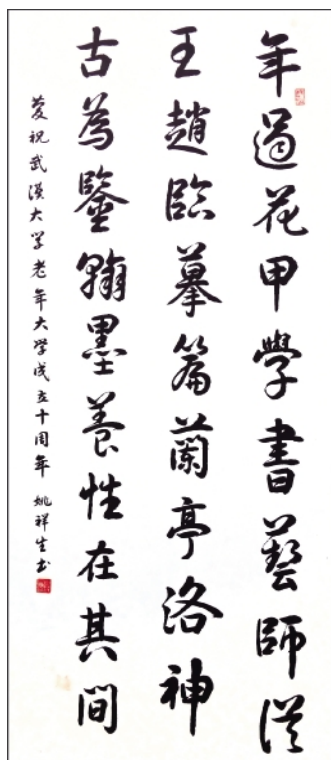 年過花甲學書藝師從
王趙臨摹篇蘭亭洛神
古為鑒翰墨養性在其間
慶祝武漢大学老年大学成立十周年 姚祥生书